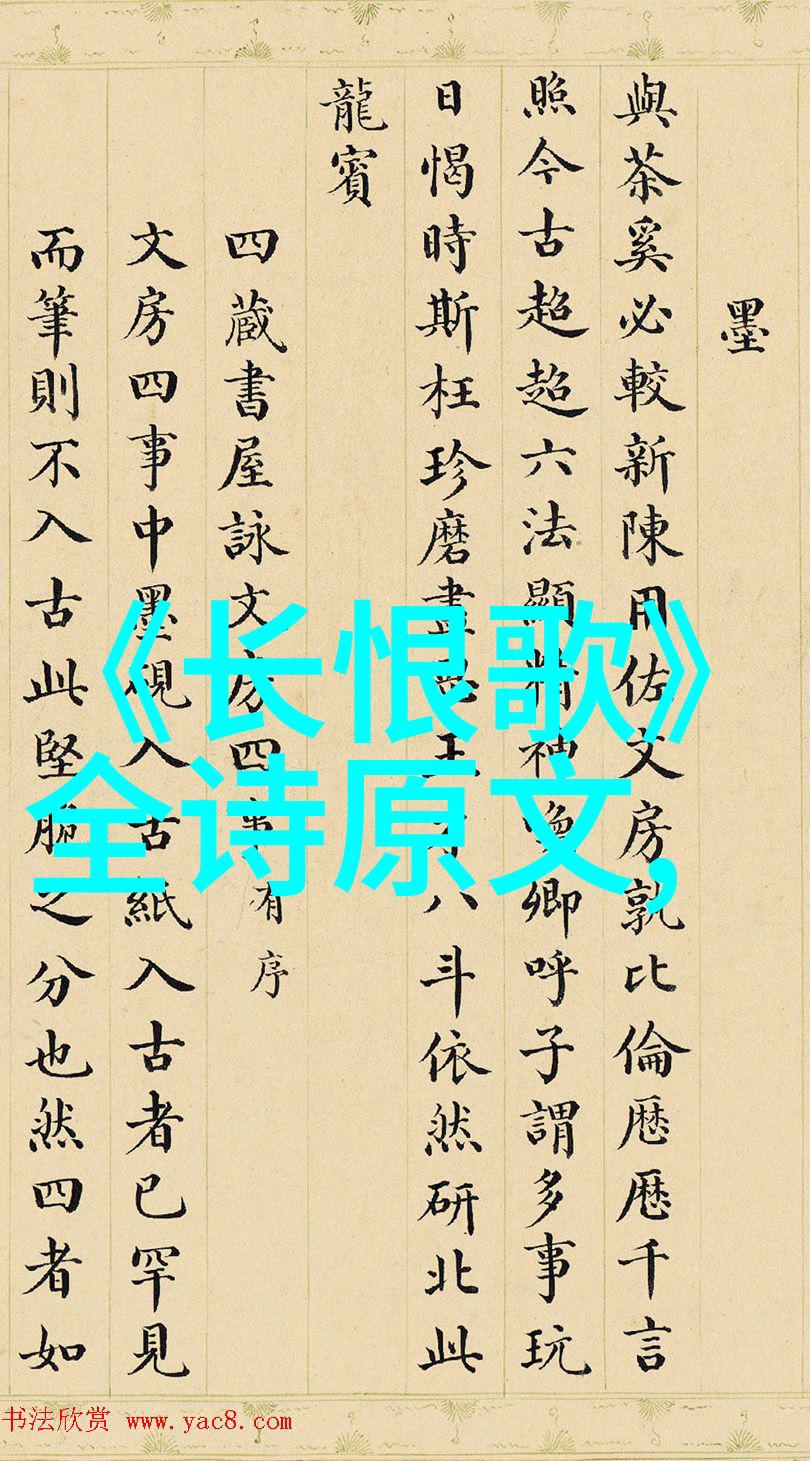 墨
與茶奚必較新陳用佐文房孰比倫歷歷千言
照今古超超六法顯精神喚卿呼子謂多事玩
日愒時斯枉珍磨盡八斗依然研北此
龍賓
四蔵書屋詠文房四事有序
文房四事中墨硯入古紙入古者已罕見
而筆則不入古此堅脆之分也然四者如
《长恨歌》
全诗原文,
书法欣赏 www.yac8.com